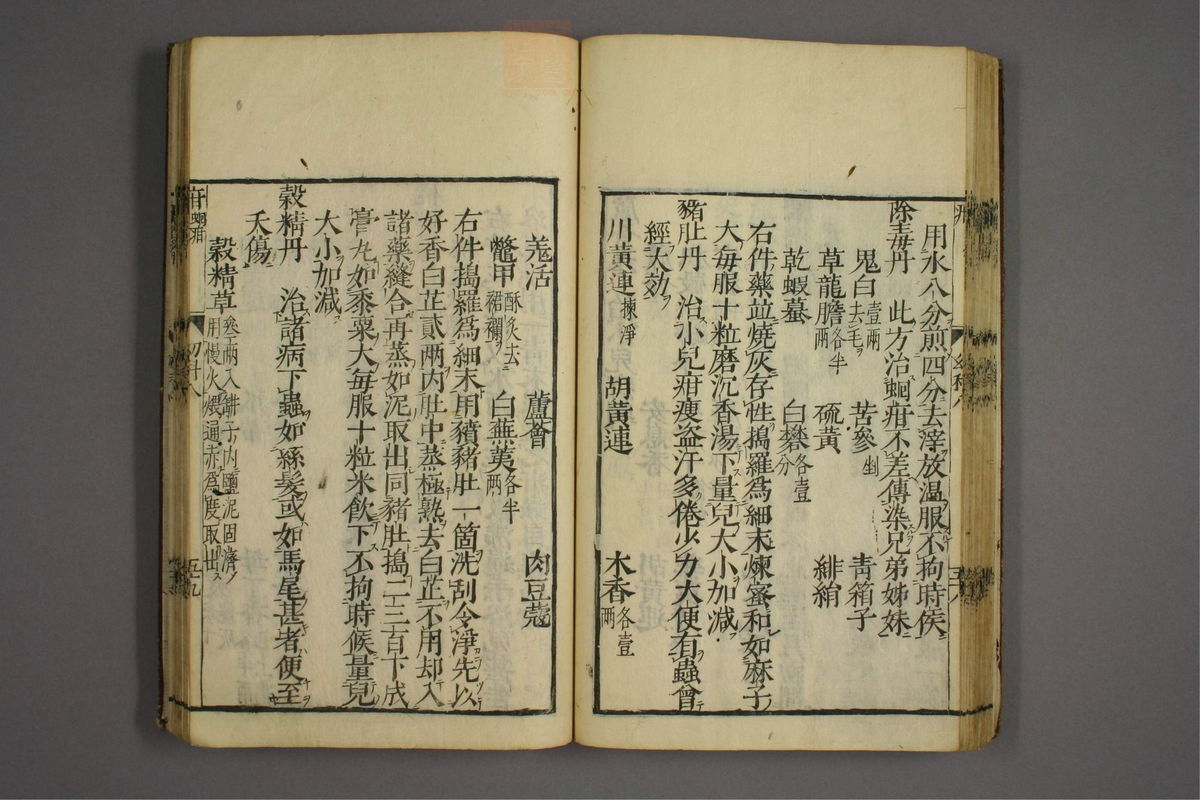 用水八分煎四分去滓放温服不拘時候
除毒丹 此方治蛔疳不差傳染兄弟姊妹
鬼臼壹兩去毛 苦參 青箱子
草龍膽各半兩 硫黃 緋絹
乾蝦蟇 白礬各壹分
右件藥並燒灰存性搗羅爲細末煉蜜和如麻子
大每服十粒磨沉香湯下量兒大小加減
豬肚丹 治小兒疳瘦盗汗多倦少力大便有蟲曾
經大効
川黃連揀淨 胡黃連 木香各壹兩
羗活 蘆會 肉豆蔻
鼈甲酥炙去裙襴 白蕪荑各半兩
右件搗羅爲細末用豶豬肚一箇洗刮令淨先以
好香白芷貳兩內肚中蒸極熟去白芷不用却入
諸藥縫合再蒸如泥取出同豬肚搗二三百下成
膏丸如黍粟大每服十粒米飲下不拘時候量兒
大小加減
穀精丹 治諸病下蟲如絲髮或如馬尾甚者便至
夭傷
穀精草參兩入餅子內鹽泥固濟用慢火煨通赤爲度取出